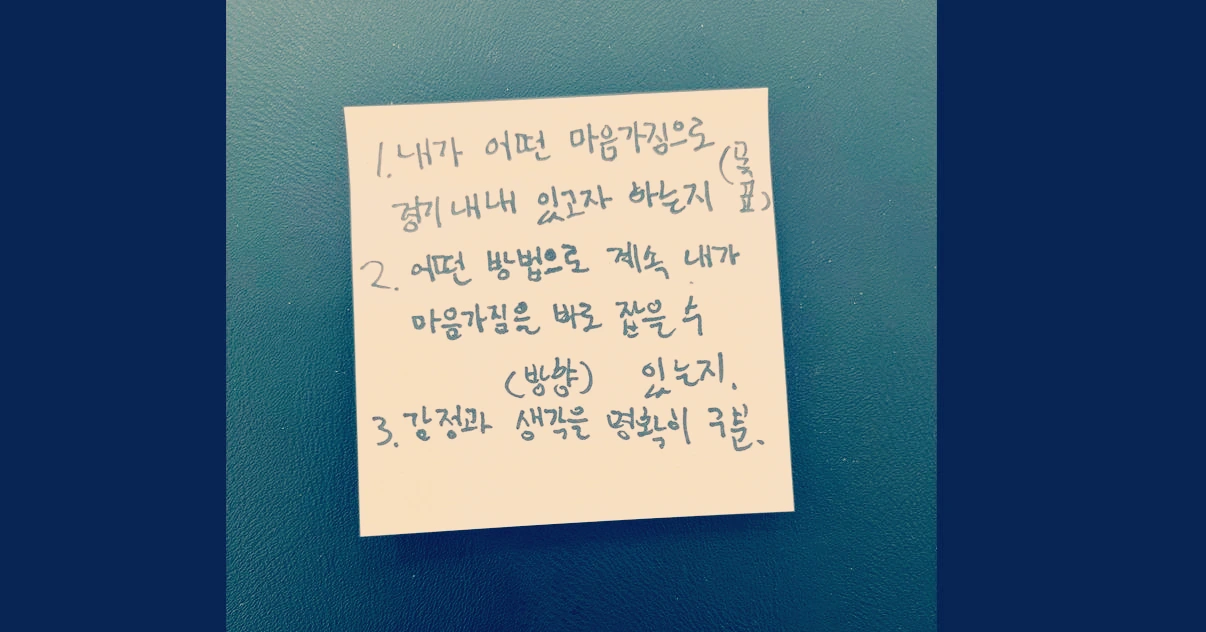 1. 내가 어떤 마음가짐으로
경기 내내 있고자 하는지 (목표)
2. 어떤 방법으로 계속 내가
마음가짐을 바로 잡을 수
(방향) 있는지.
3. 감정과 생각을 명확히 구분.